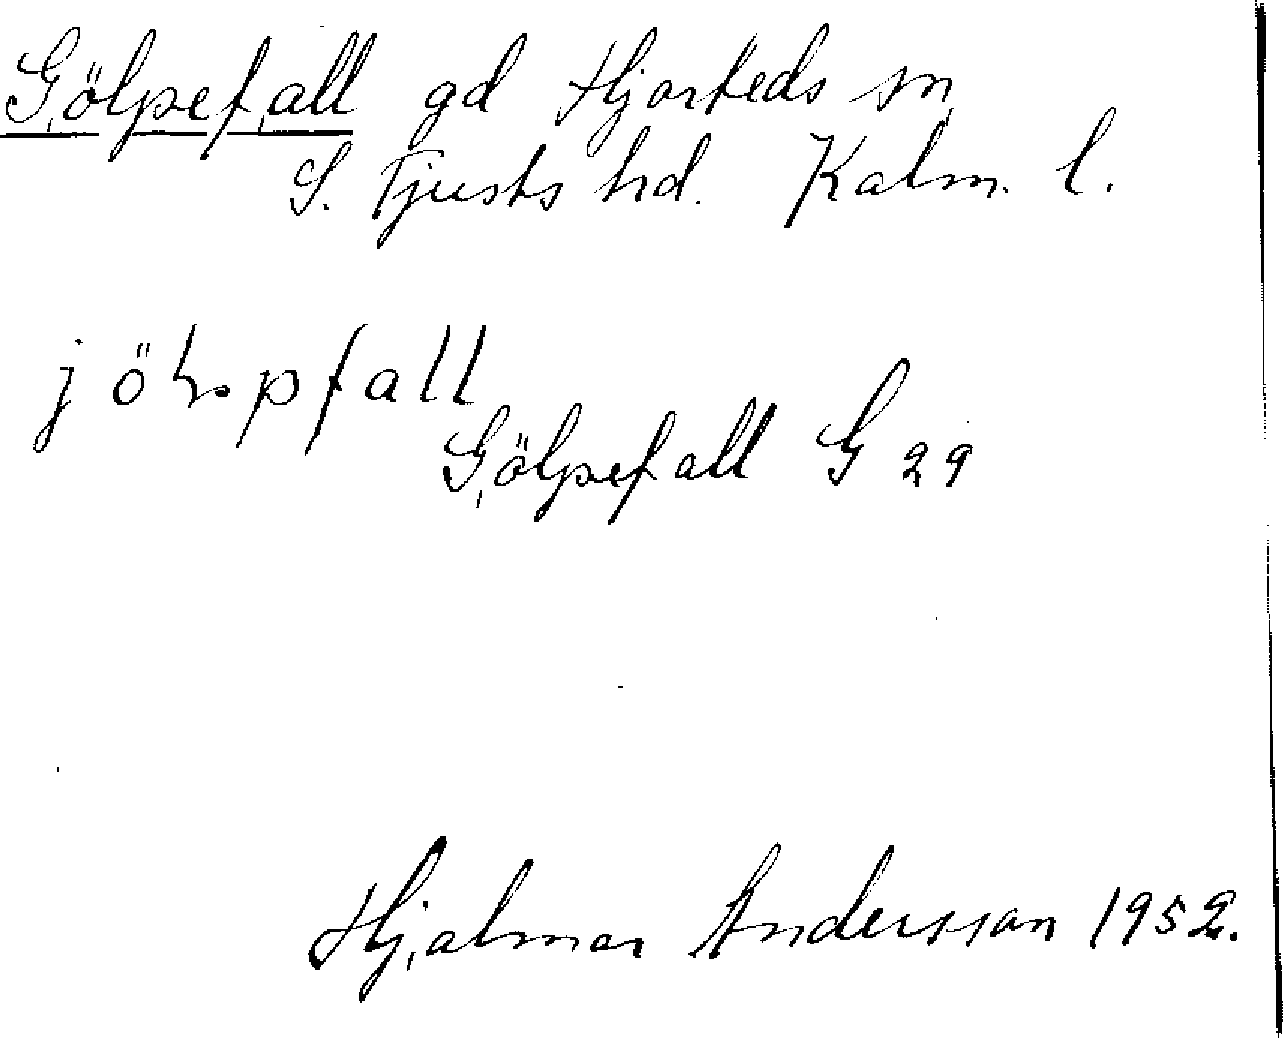 Gölpefall gd Hjorteds sn
S. Tjusts hd. Kalm. l.
jölpfall
Gölpefall G 29
Hjalmar Andersson 1952.